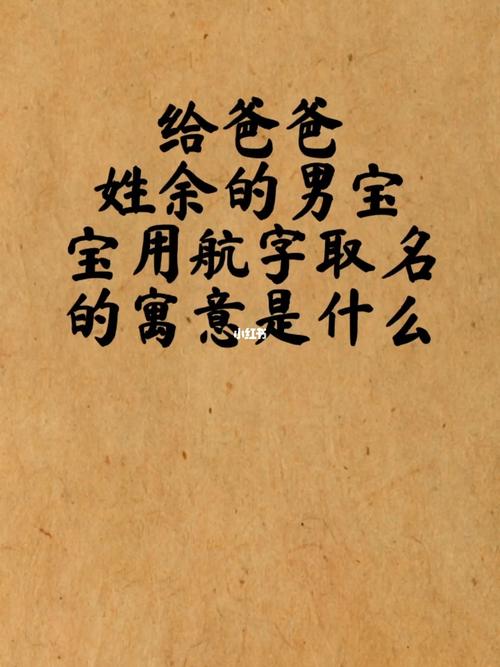 给爸爸
姓余的男宝
宝用航字取名
的寓意是什么
小红书